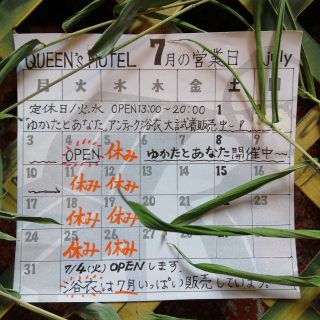 QUEEN'S HOTEL 7月の営業日 july
月 火 水 木 金 土 日
定休日/火.水 OPEN13:00~20:00 1 2
ゆかたとあなた アンティーク浴衣大試着販売中~
3 4 5 6 7 8 9
OPEN 休み ゆかたとあなた開催中~
10 11 12 13 14 15
休み 休み
17 18 19 20 21 22
休み 休み
24 25 26 27 28 29 30
休み 休み
31 7/4(火)OPENします。
浴衣は7月いっぱい販売しています。